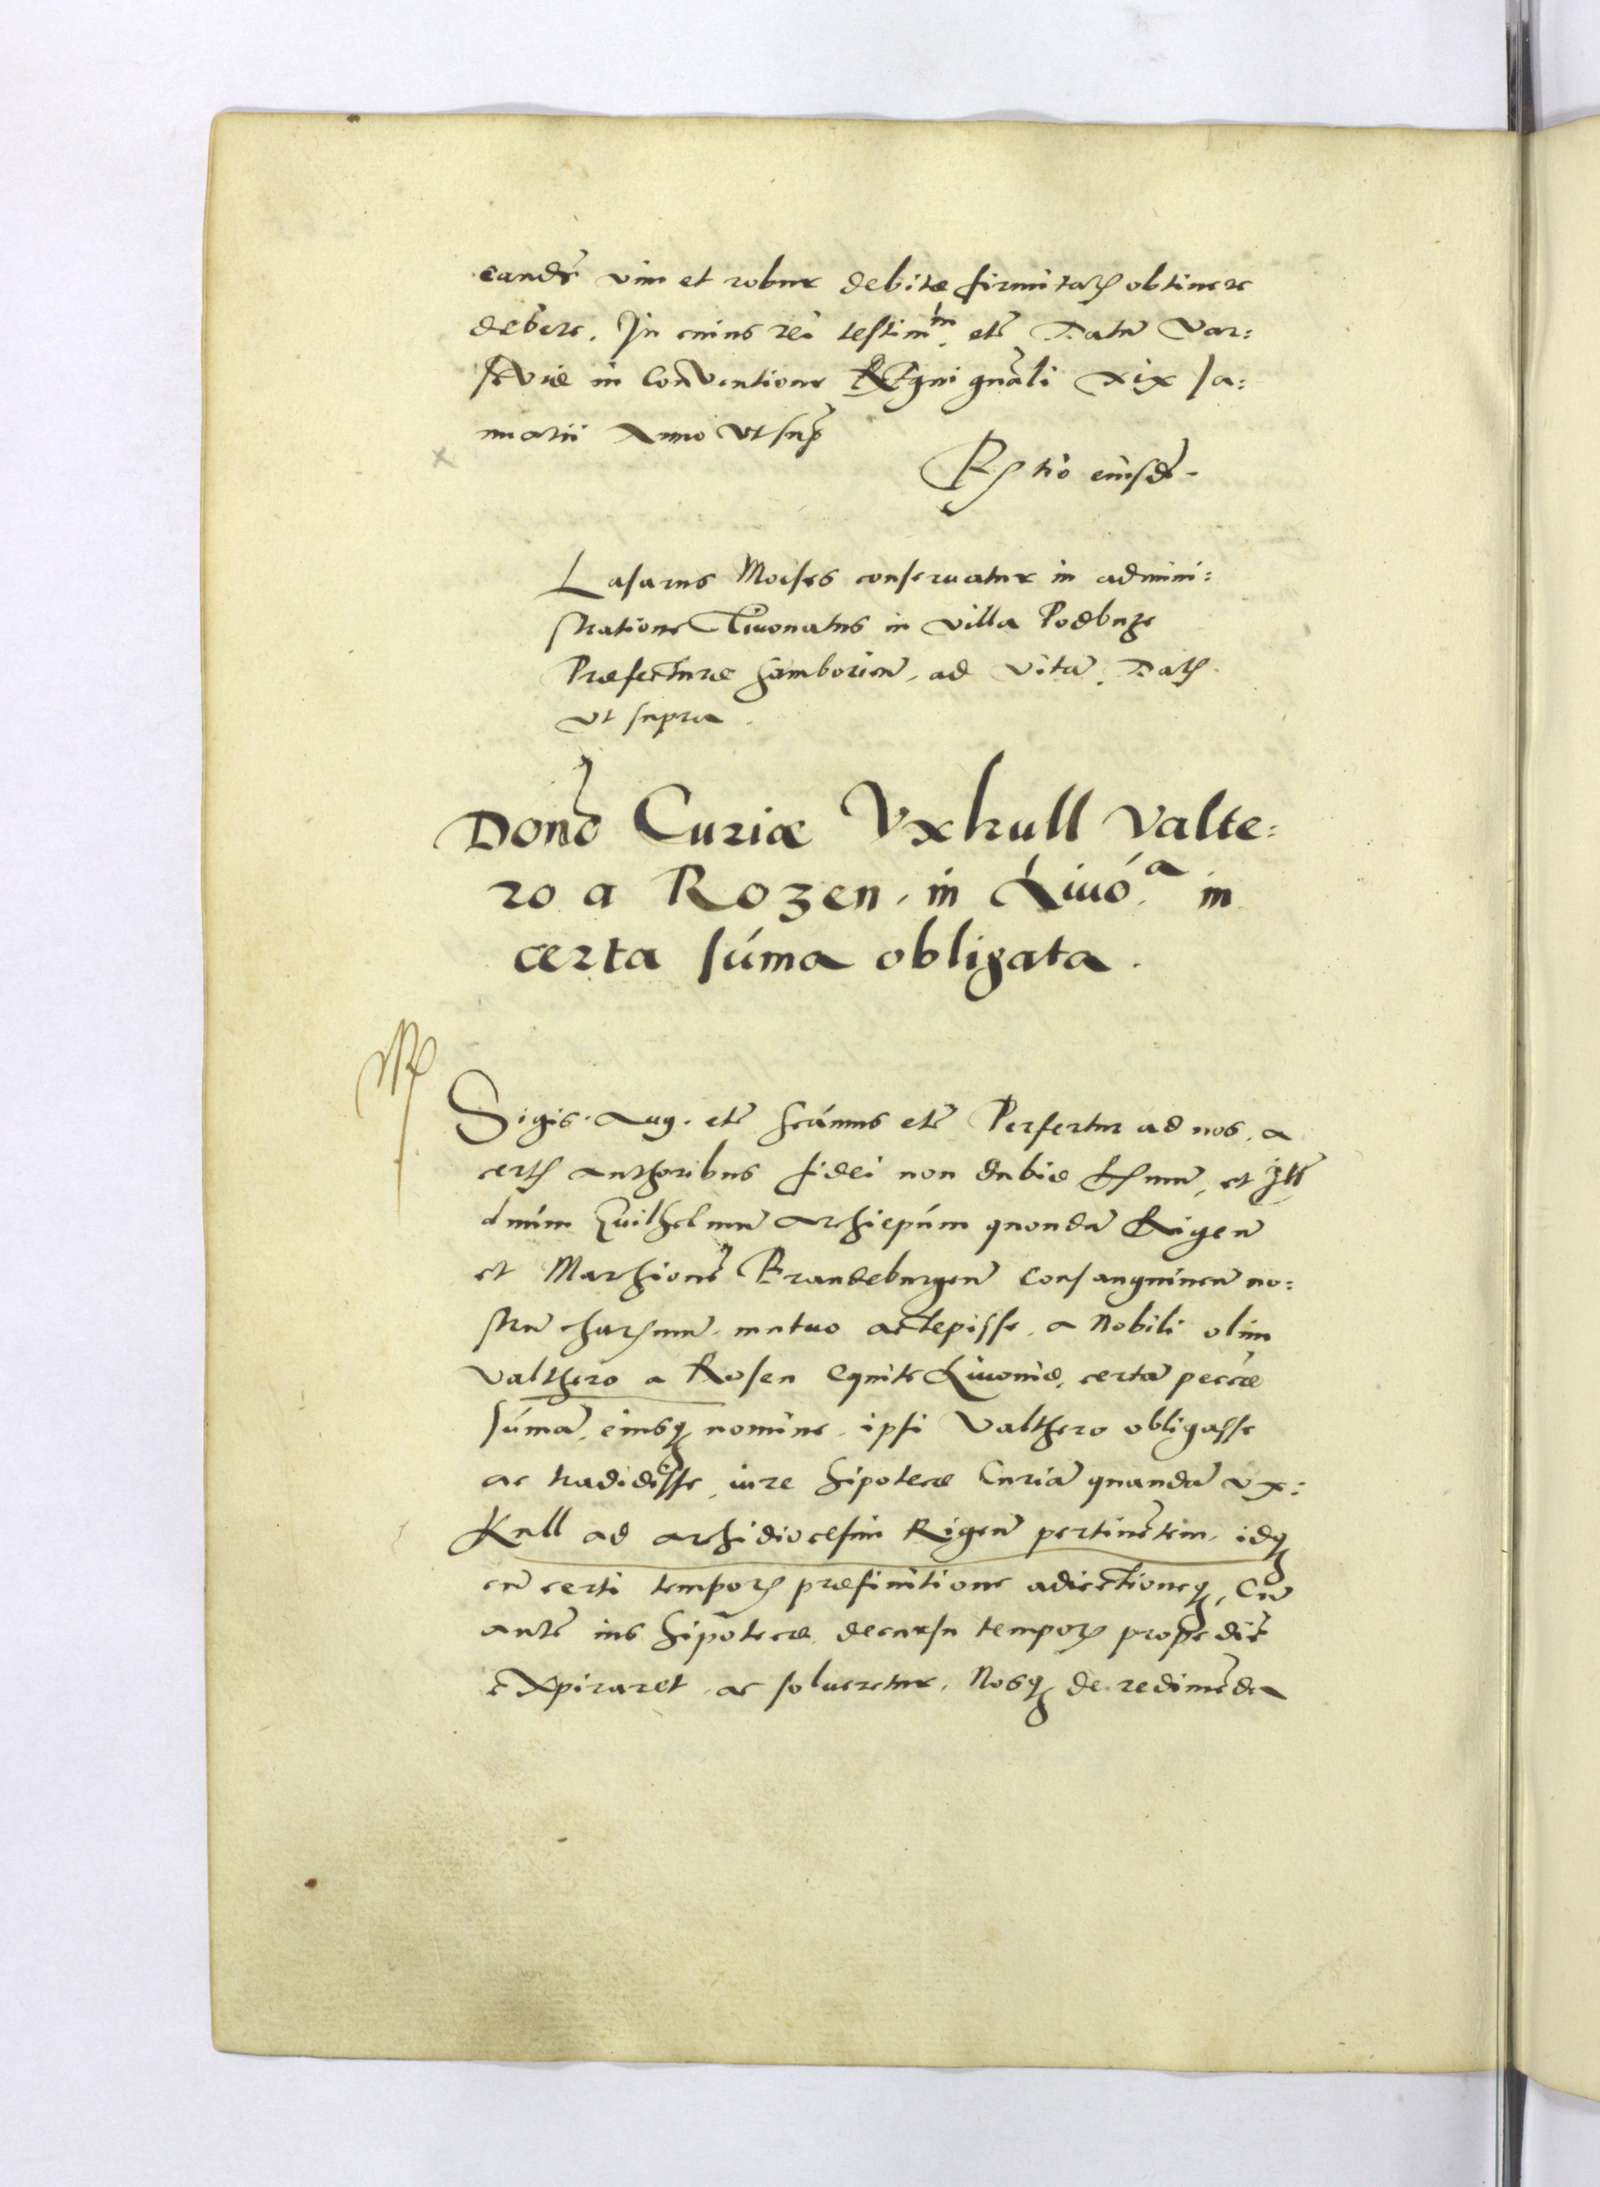 eandē vim et robur debitæ firmitatꝭ obtinere
debere. In cuius rei testim̄ᵐ. etc̄ Datū Var:
saviæ in Conventione Regni gnāli xix Ja:
nuarii Anno vt supᵃ
Rꝭtio eiusdē.
Lasarus Moises conseruatur in admini:
stratione Tiuonatus in villa Podbuże
Præfecturæ Samborien̄, ad vitā. Datꝭ
vt supra.
Donō Curiæ Vxkull Valte:
ro a Rozen, in Liuó.ᵃ in
certa súma obligata.
Sigis. Aug. etc̄ Seámus etc̄ Perfertur ad nos, a
certꝭ authoribus fidei non dubiæ Rꝭmum, et Ill
dnúm Guilhelmū Archiepúm quondā Rigen̄
et Marchionē Brandeburgen̄ Consanguineū no:
strū charꝭmum, mutuo accepisse, a Nobili olim
Valthero a Rosen Equite Liuoniæ, certā pecciæ
súmā, eiusqꝫ nomine, ipsi Valthero obligasse
ac tradidisse, iure hipotecæ Curiā quandā vx:
Kull ad archidiocesim Rigen̄ pertinētem, idqꝫ
cū certi temporꝭ præfinitione adiectioneqꝫ, Cū
autē ius hipotecæ, decursu temporꝭ prope diē
expiraret, ac solueretur, Nosqꝫ de redimēda